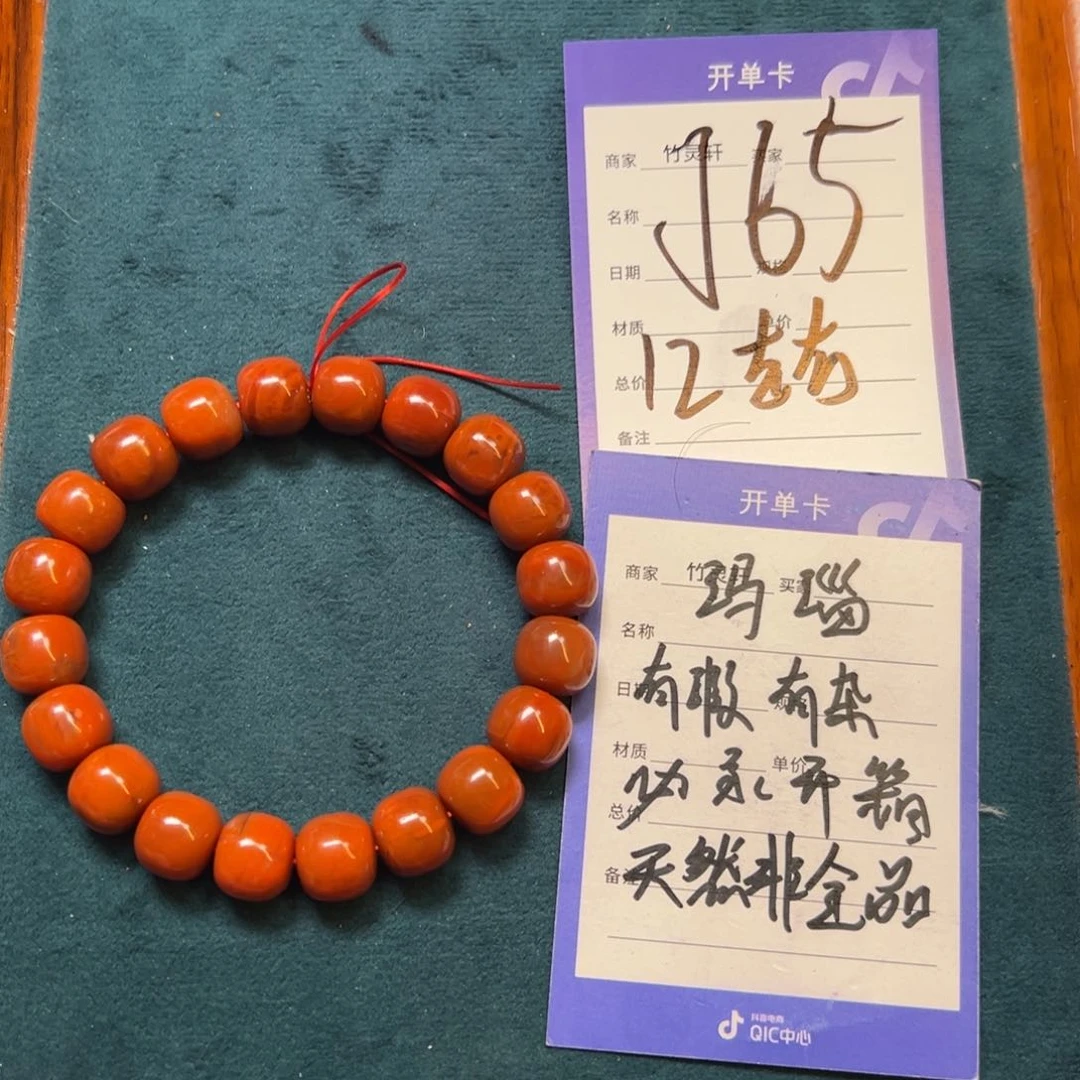 开单卡
商家 竹灵轩 买家
J65
名称
日期 规格
材质 单价
12
总价
备注
开单卡
商家 竹灵轩 买家
玛瑙
名称
有瑕有杂
日期 规格
材质 单价
开箱
总价
天然非全品
备注
抖音电商
QIC中心